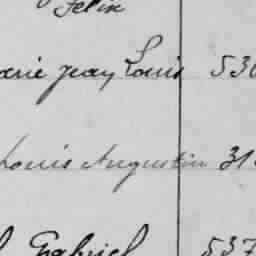 Felix
arie jean Louis 530
Louis Augustin 31
Gabriel 537